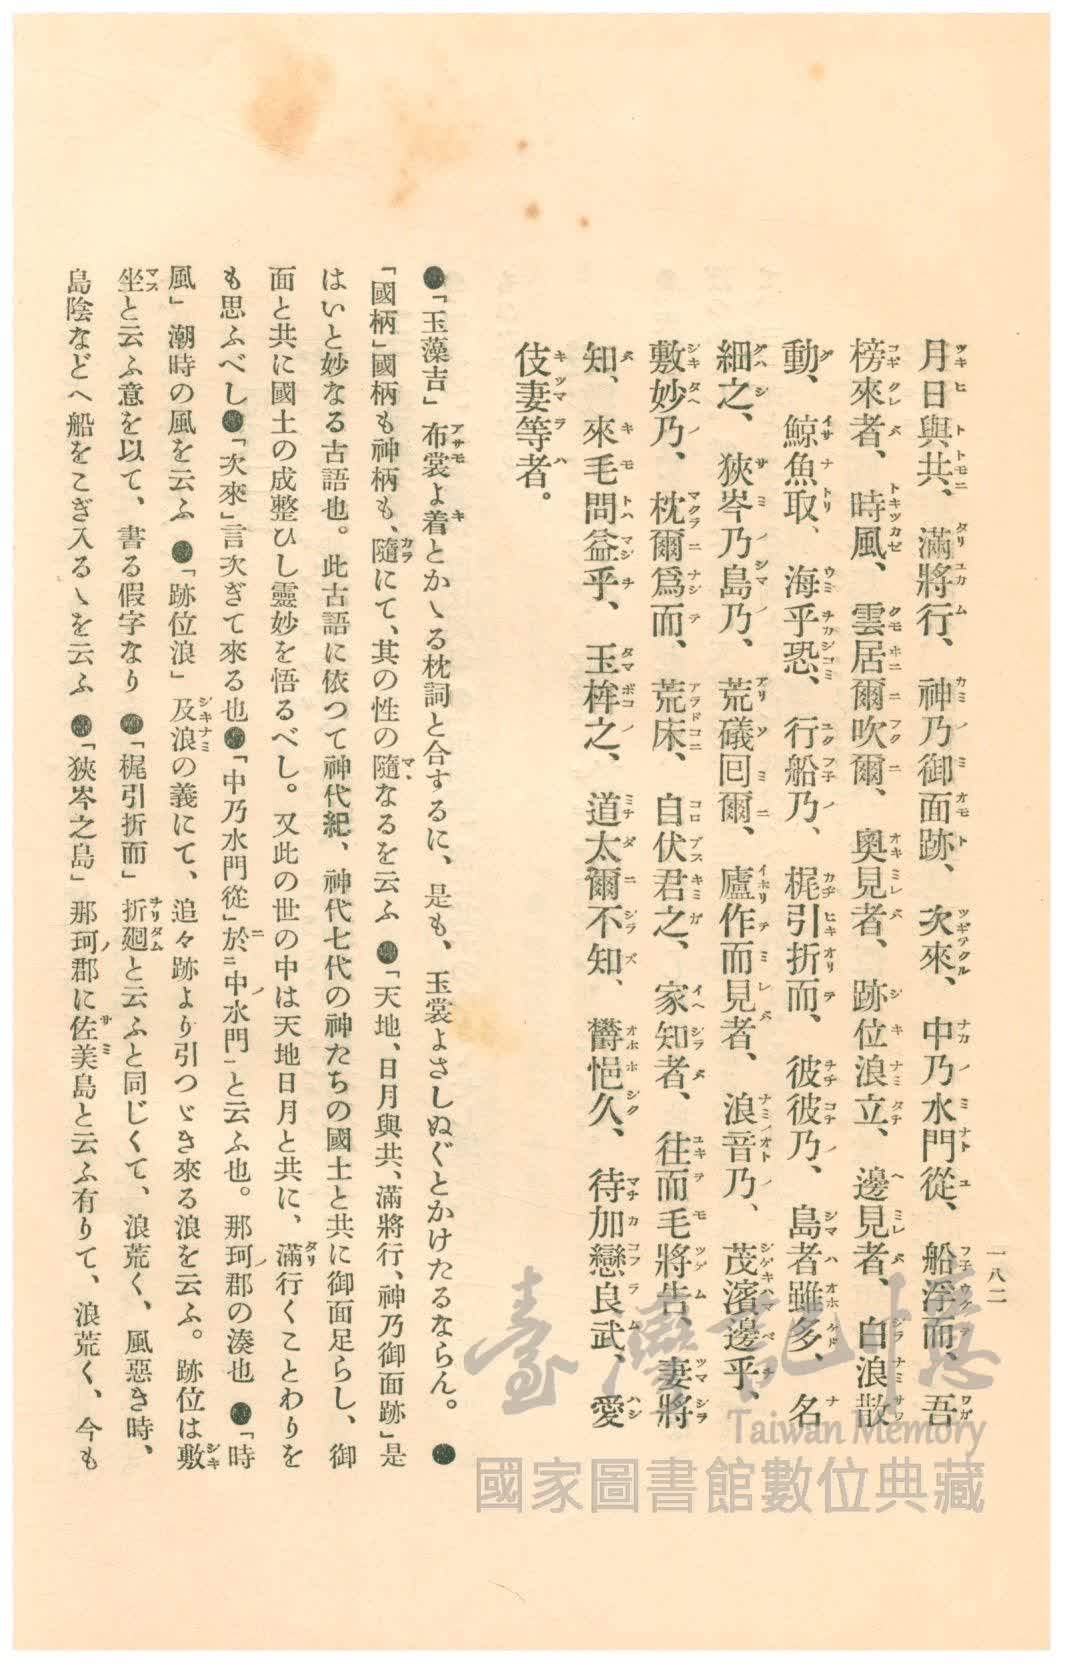 一八二
月日與共、滿將行、神乃御面跡、次來、中乃水門從、船浮而、吾
榜來者、時風、雲居爾吹爾、奧見者、跡位浪立、邊見者、白浪散
動、鯨魚取、海乎恐、行船乃、梶引折而、彼彼乃、島者雖多、名
細之、狹岑乃島乃、荒礒囘爾、廬作而見者、浪音乃、茂濱邊乎、
敷妙乃、枕爾爲而、荒床、自伏君之、家知者、往而毛將告、妻將
知、來毛問益乎、玉桙之、道太爾不知、欝悒久、待加戀良武、愛
伎妻等者。
●「玉藻吉」布裳よ着とかゝる枕詞と合するに、是も、玉裳よさしぬぐとかけたるならん。●
「國柄」國柄も神柄も、隨にて、其の性の隨なるを云ふ●「天地、日月與共、滿將行、神乃御面跡」是
はいと妙なる古語也。此古語に依つて神代紀、神代七代の神たちの國土と共に御面足らし、御
面と共に國土の成整ひし靈妙を悟るべし。又此の世の中は天地日月と共に、滿行くことわりを
も思ふべし●「次來」言次ぎて來る也●「中乃水門從」於二中水門一と云ふ也。那珂郡の湊也●「時
風」潮時の風を云ふ●「跡位浪」及浪の義にて、追々跡より引つゞき來る浪を云ふ。跡位は敷
坐と云ふ意を以て、書る假字なり●「梶引折而」折廻と云ふと同じくて、浪荒く、風惡き時、
島陰などへ船をこぎ入るゝを云ふ●「狹岑之島」那珂郡に佐美島と云ふ有りて、浪荒く、今も
臺灣記憶
Taiwan Memory
國家圖書館數位典藏